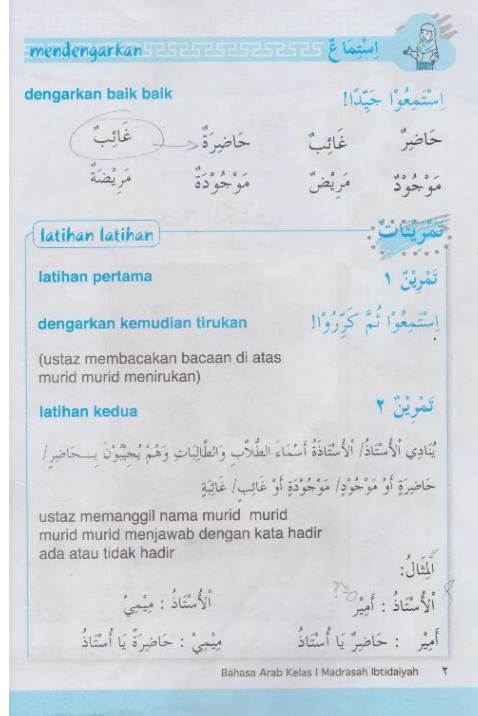 mendengarkan اِسْتِمَاعٌ
dengarkan baik baik اِسْتَمِعُوْا جَيِّدًا!
حَاضِرٌ غَائِبٌ حَاضِرَةٌ غَائِبٌ
مَوْجُوْدٌ مَرِيْضٌ مَوْجُوْدَةٌ مَرِيْضَةٌ
latihan latihan تَمْرِيْنَاتٌ
latihan pertama تَمْرِيْنٌ ١
dengarkan kemudian tirukan اِسْتَمِعُوْا ثُمَّ كَرِّرُوْا!
(ustaz membacakan bacaan di atas
murid murid menirukan)
latihan kedua تَمْرِيْنٌ ٢
يُنَادِي الْأُسْتَاذُ/ الْأُسْتَاذَةُ أَسْمَاءَ الطُّلَّابِ وَالطَّالِبَاتِ وَهُمْ يُجِيْبُوْنَ بِــحَاضِرٍ/
حَاضِرَةٍ أَوْ مَوْجُوْدٍ/ مَوْجُوْدَةٍ أَوْ غَائِبٍ/ غَائِبَةٍ
ustaz memanggil nama murid murid
murid murid menjawab dengan kata hadir
ada atau tidak hadir
الْمِثَالُ:
الْأُسْتَاذُ : أَمِيْر الْأُسْتَاذُ : مِيْمِيْ
أَمِيْر : حَاضِرٌ يَا أُسْتَاذُ مِيْمِيْ : حَاضِرَةٌ يَا أُسْتَاذُ
Bahasa Arab Kelas I Madrasah Ibtidaiyah ٢